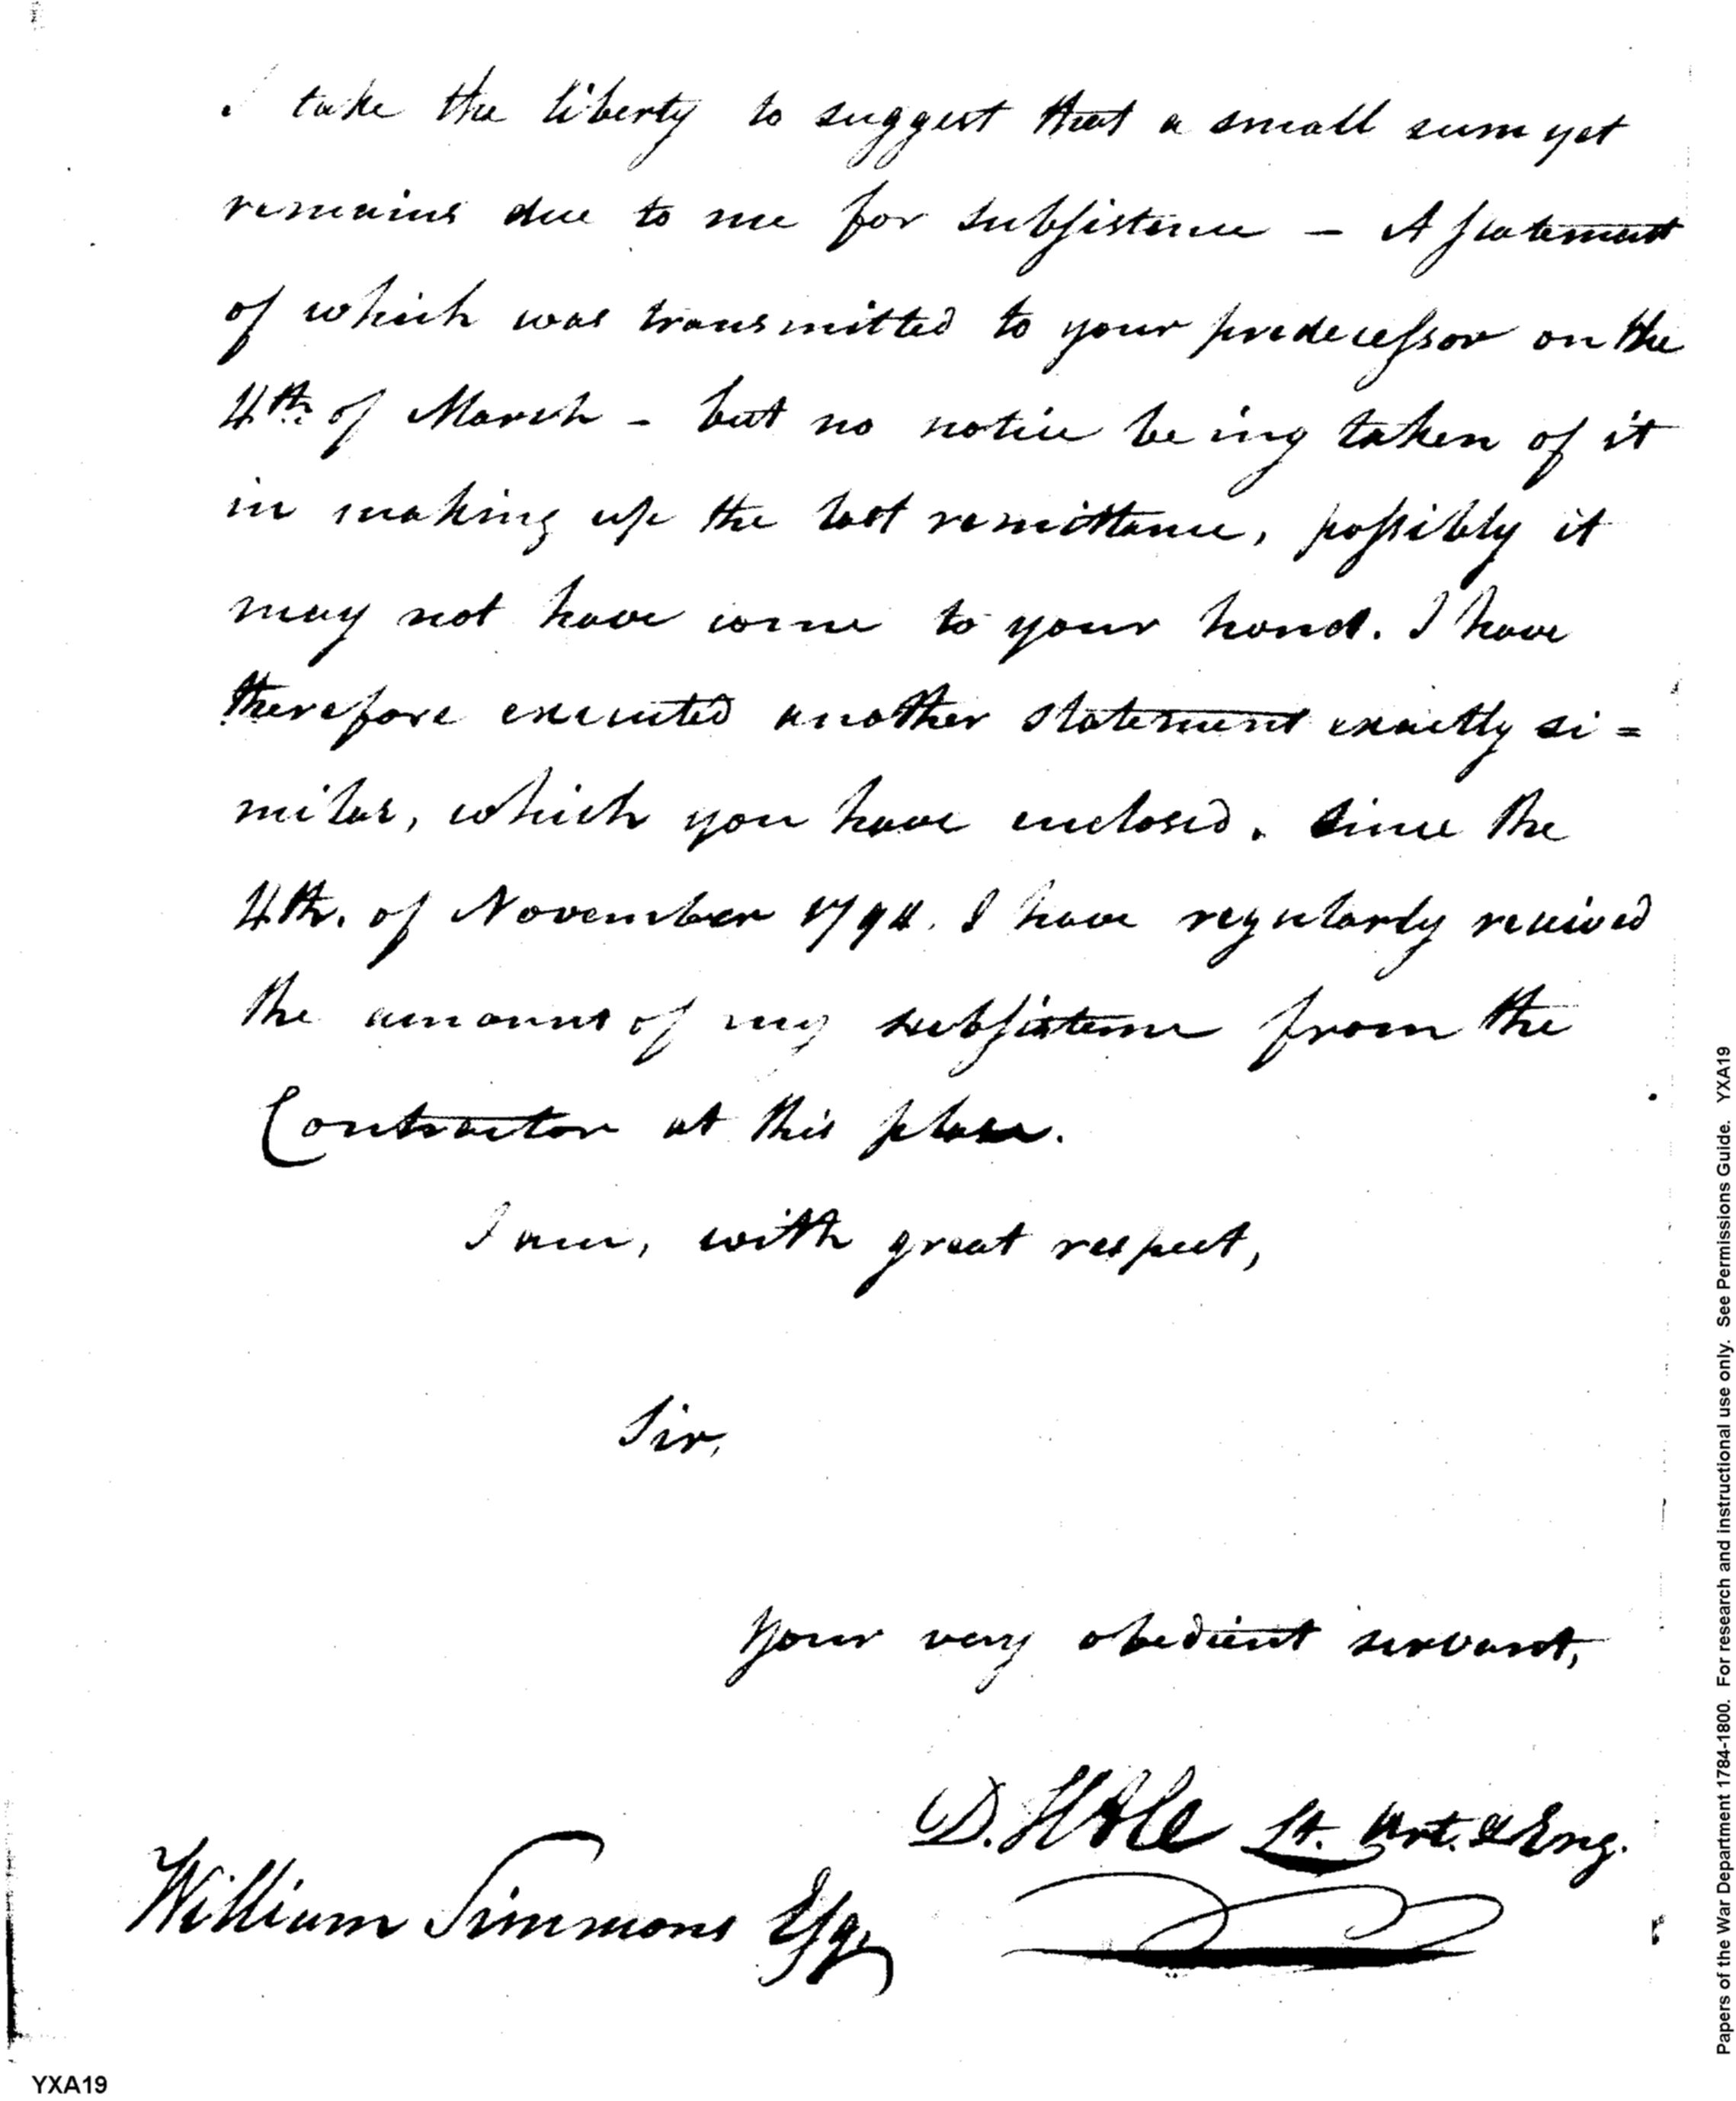 I take the liberty to suggest that a small sum yet
remains due to me for subsistence – A statement
of which was transmitted to your predecessor on the
4th of March – but no notice being taken of it
in making up the last remittance, possibly it
may not have come to your hand. I have
therefore executed another statement exactly si=
milar, which you have enclosed. Since the
4th. of November 1794. I have regularly received
the amount of my subsistence from the
Contractor at this place.
I am, with great respect,
Sir,
Your very obedient servant,
D. Hale Lt. Art. & Eng.
William Simmons Esqr
YXA19
Papers of the War Department 1784-1800. For research and instructional use only. See Permissions Guide. YXA19